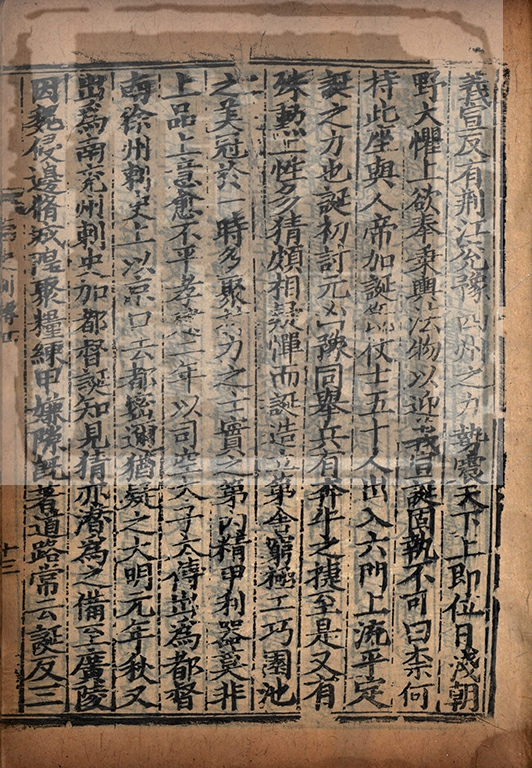 義宣反有荆江兗豫四州之力勢震天下上即位日淺朝
野大懼上欲奉乗輿法物以迎義宣誕固執不可曰柰何
持此座與人帝加誕節仗士五十人出入六門上流平定
誕之力也誕初討元凶豫同舉兵有奔牛之捷至是又有
殊勲上性多猜頗相疑憚而誕造立第舍窮極工巧園池
之美冠於一時多聚材力之士實之第内精甲利器莫非
上品上意愈不平孝建二年以司空太子太傅出為都督
南徐州刺史上以京口去都密邇猶疑之大明元年秋又
出為南兖州刺史加都督誕知見猜亦潜為之備至廣陵
因魏侵邊脩城隍聚糧練甲嫌隙旣著道路常云誕反三
十三